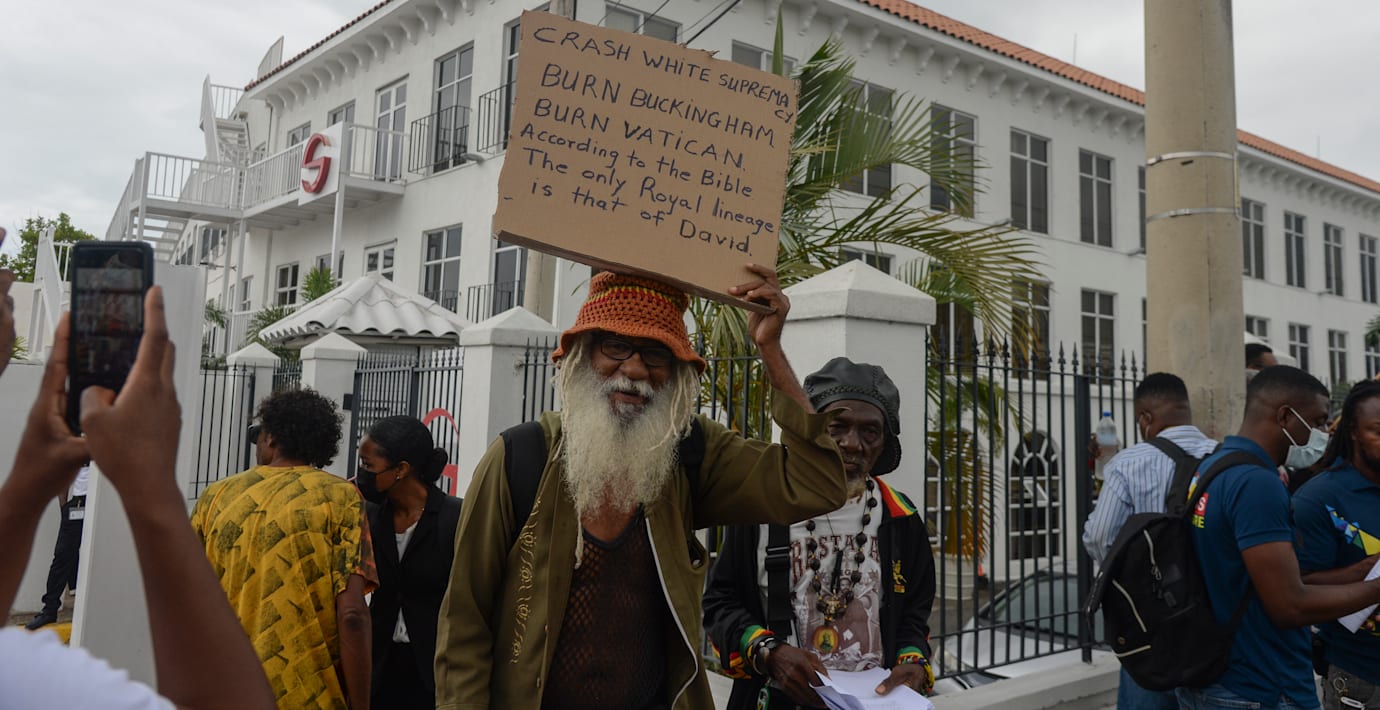 CRASH WHITE SUPREMA
CY
BURN BUCKINGHAM
BURN VATICAN.
According to the Bible
The only Royal lineage
- is that of David
G